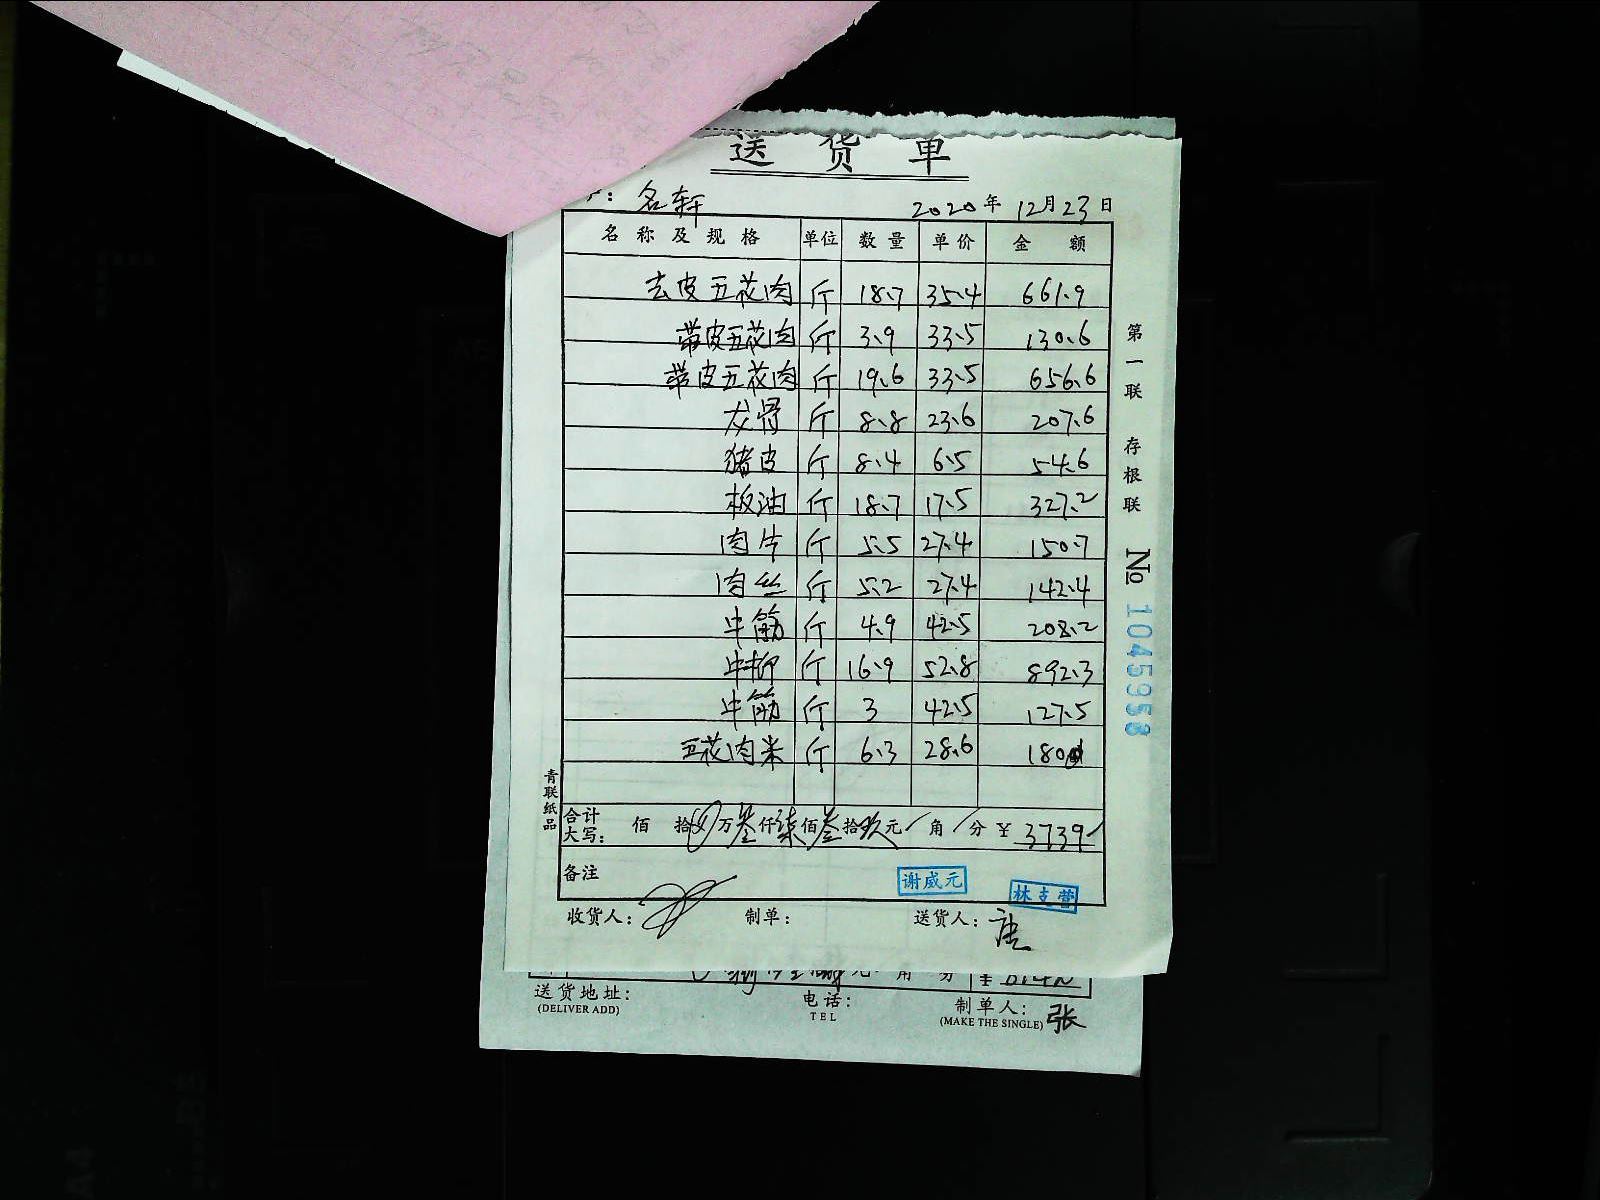 送货单
：名轩 2020年12月23日
名称及规格 单位 数量 单价 金额
去皮五花肉 斤 18.7 35.4 661.9
带皮五花肉 斤 3.9 33.5 130.6
带皮五花肉 斤 19.6 33.5 656.6
龙骨 斤 8.8 23.6 207.6
猪皮 斤 8.4 6.5 54.6
板油 斤 18.7 17.5 327.2
肉片 斤 5.5 27.4 150.7
肉丝 斤 5.2 27.4 142.4
牛筋 斤 4.9 42.5 208.2
牛柳 斤 16.9 52.8 892.3
牛筋 斤 3 42.5 127.5
五花肉米 斤 6.3 28.6 180
合计大写： 佰 拾 万叁仟柒佰叁拾玖元/角/分 ¥3739
备注
谢威元
林支营
收货人： 制单： 送货人：唐
第一联 存根联 № 1045958
青联纸品
元 角 分 ¥
送货地址： 电话： 制单人：张
(DELIVER ADD) TEL (MAKE THE SINGLE)